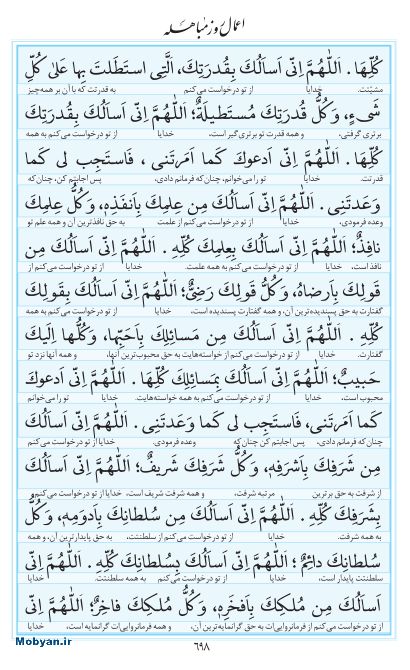 اعمال روز مباهله
كُلِّهَا . اَللّٰهُمَّ اِنّى اَسأَلُكَ بِقُدرَتِكَ، الَّتِى استَطَلتَ بِها عَلىٰ كُلِّ
مشیّتت. خدایا از تو درخواست می‌کنم به قدرتت که با آن بر همه‌چیز
شَىءٍ، وَكُلُّ قُدرَتِكَ مُستَطيلَةٌ؛ اَللّٰهُمَّ اِنّى اَسأَلُكَ بِقُدرَتِكَ
برتری گرفتی، و همه قدرت تو برتری گیر است، خدایا از تو درخواست می‌کنم به همه
كُلِّهَا . اَللّٰهُمَّ اِنّى اَدعوكَ كَما اَمَرتَنى ، فَاستَجِب لى كَما
قدرتت. خدایا تو را می‌خوانم، چنان‌که فرمانم دادی، پس اجابتم کن، چنان‌که
وَعَدتَنِى . اَللّٰهُمَّ اِنّى اَسأَلُكَ مِن عِلمِكَ بِاَنفَذِهِ، وَكُلُّ عِلمِكَ
وعده فرمودی. خدایا از تو درخواست می‌کنم از علمت به حق نافذترین آن و همه علم تو
نافِذٌ؛ اَللّٰهُمَّ اِنّى اَسأَلُكَ بِعِلمِكَ كُلِّهِ . اَللّٰهُمَّ اِنّى اَسأَلُكَ مِن
نافذ است، خدایا از تو درخواست می‌کنم به همه علمت. خدایا از تو درخواست می‌کنم از
قَولِكَ بِاَرضاهُ، وَكُلُّ قَولِكَ رَضِىٌّ؛ اَللّٰهُمَّ اِنّى اَسأَلُكَ بِقَولِكَ
گفتارت به حق پسندیده‌ترین آن، و همه گفتارت پسندیده است، خدایا از تو درخواست می‌کنم به همه
كُلِّهِ . اَللّٰهُمَّ اِنّى اَسأَلُكَ مِن مَسائِلِكَ بِاَحَبِّها، وَكُلُّها اِلَيكَ
گفتارت. خدایا از تو درخواست می‌کنم از خواسته‌هایت به حق محبوب‌ترین آنها، و همه آنها نزد تو
حَبيبٌ؛ اَللّٰهُمَّ اِنّى اَسأَلُكَ بِمَسائِلِكَ كُلِّهَا . اَللّٰهُمَّ اِنّى اَدعوكَ
محبوب است، خدایا از تو درخواست می‌کنم به همه خواسته‌هایت. خدایا تو را می‌خوانم
كَما اَمَرتَنى، فَاستَجِب لى كَما وَعَدتَنِى . اَللّٰهُمَّ اِنّى اَسأَلُكَ
چنان‌که فرمانم دادی، پس اجابتم کن چنان‌که وعده فرمودی. خدایا از تو درخواست می‌کنم
مِن شَرَفِكَ بِاَشرَفِهِ، وَكُلُّ شَرَفِكَ شَريفٌ؛ اَللّٰهُمَّ اِنّى اَسأَلُكَ
از شرفت به حق برترین مرتبه شرفت، و همه شرفت شریف است، خدایا از تو درخواست می‌کنم
بِشَرَفِكَ كُلِّهِ . اَللّٰهُمَّ اِنّى اَسأَلُكَ مِن سُلطانِكَ بِاَدوَمِهِ، وَكُلُّ
به همه شرفت. خدایا از تو درخواست می‌کنم از سلطنتت، به حق پایدارترین آن، و همه
سُلطانِكَ دائِمٌ ؛ اَللّٰهُمَّ اِنّى اَسأَلُكَ بِسُلطانِكَ كُلِّهِ . اَللّٰهُمَّ اِنّى
سلطنتت پایدار است، خدایا از تو درخواست می‌کنم به همه سلطنتت. خدایا از تو
اَسأَلُكَ مِن مُلكِكَ بِاَفخَرِهِ، وَكُلُّ مُلكِكَ فاخِرٌ؛ اَللّٰهُمَّ اِنّى
درخواست می‌کنم از فرمانروایی‌ات به حق گرانمایه‌ترین آن، و همه فرمانروایی‌ات گرانمایه است، خدایا از تو
Mobyan.ir
۶۹۸